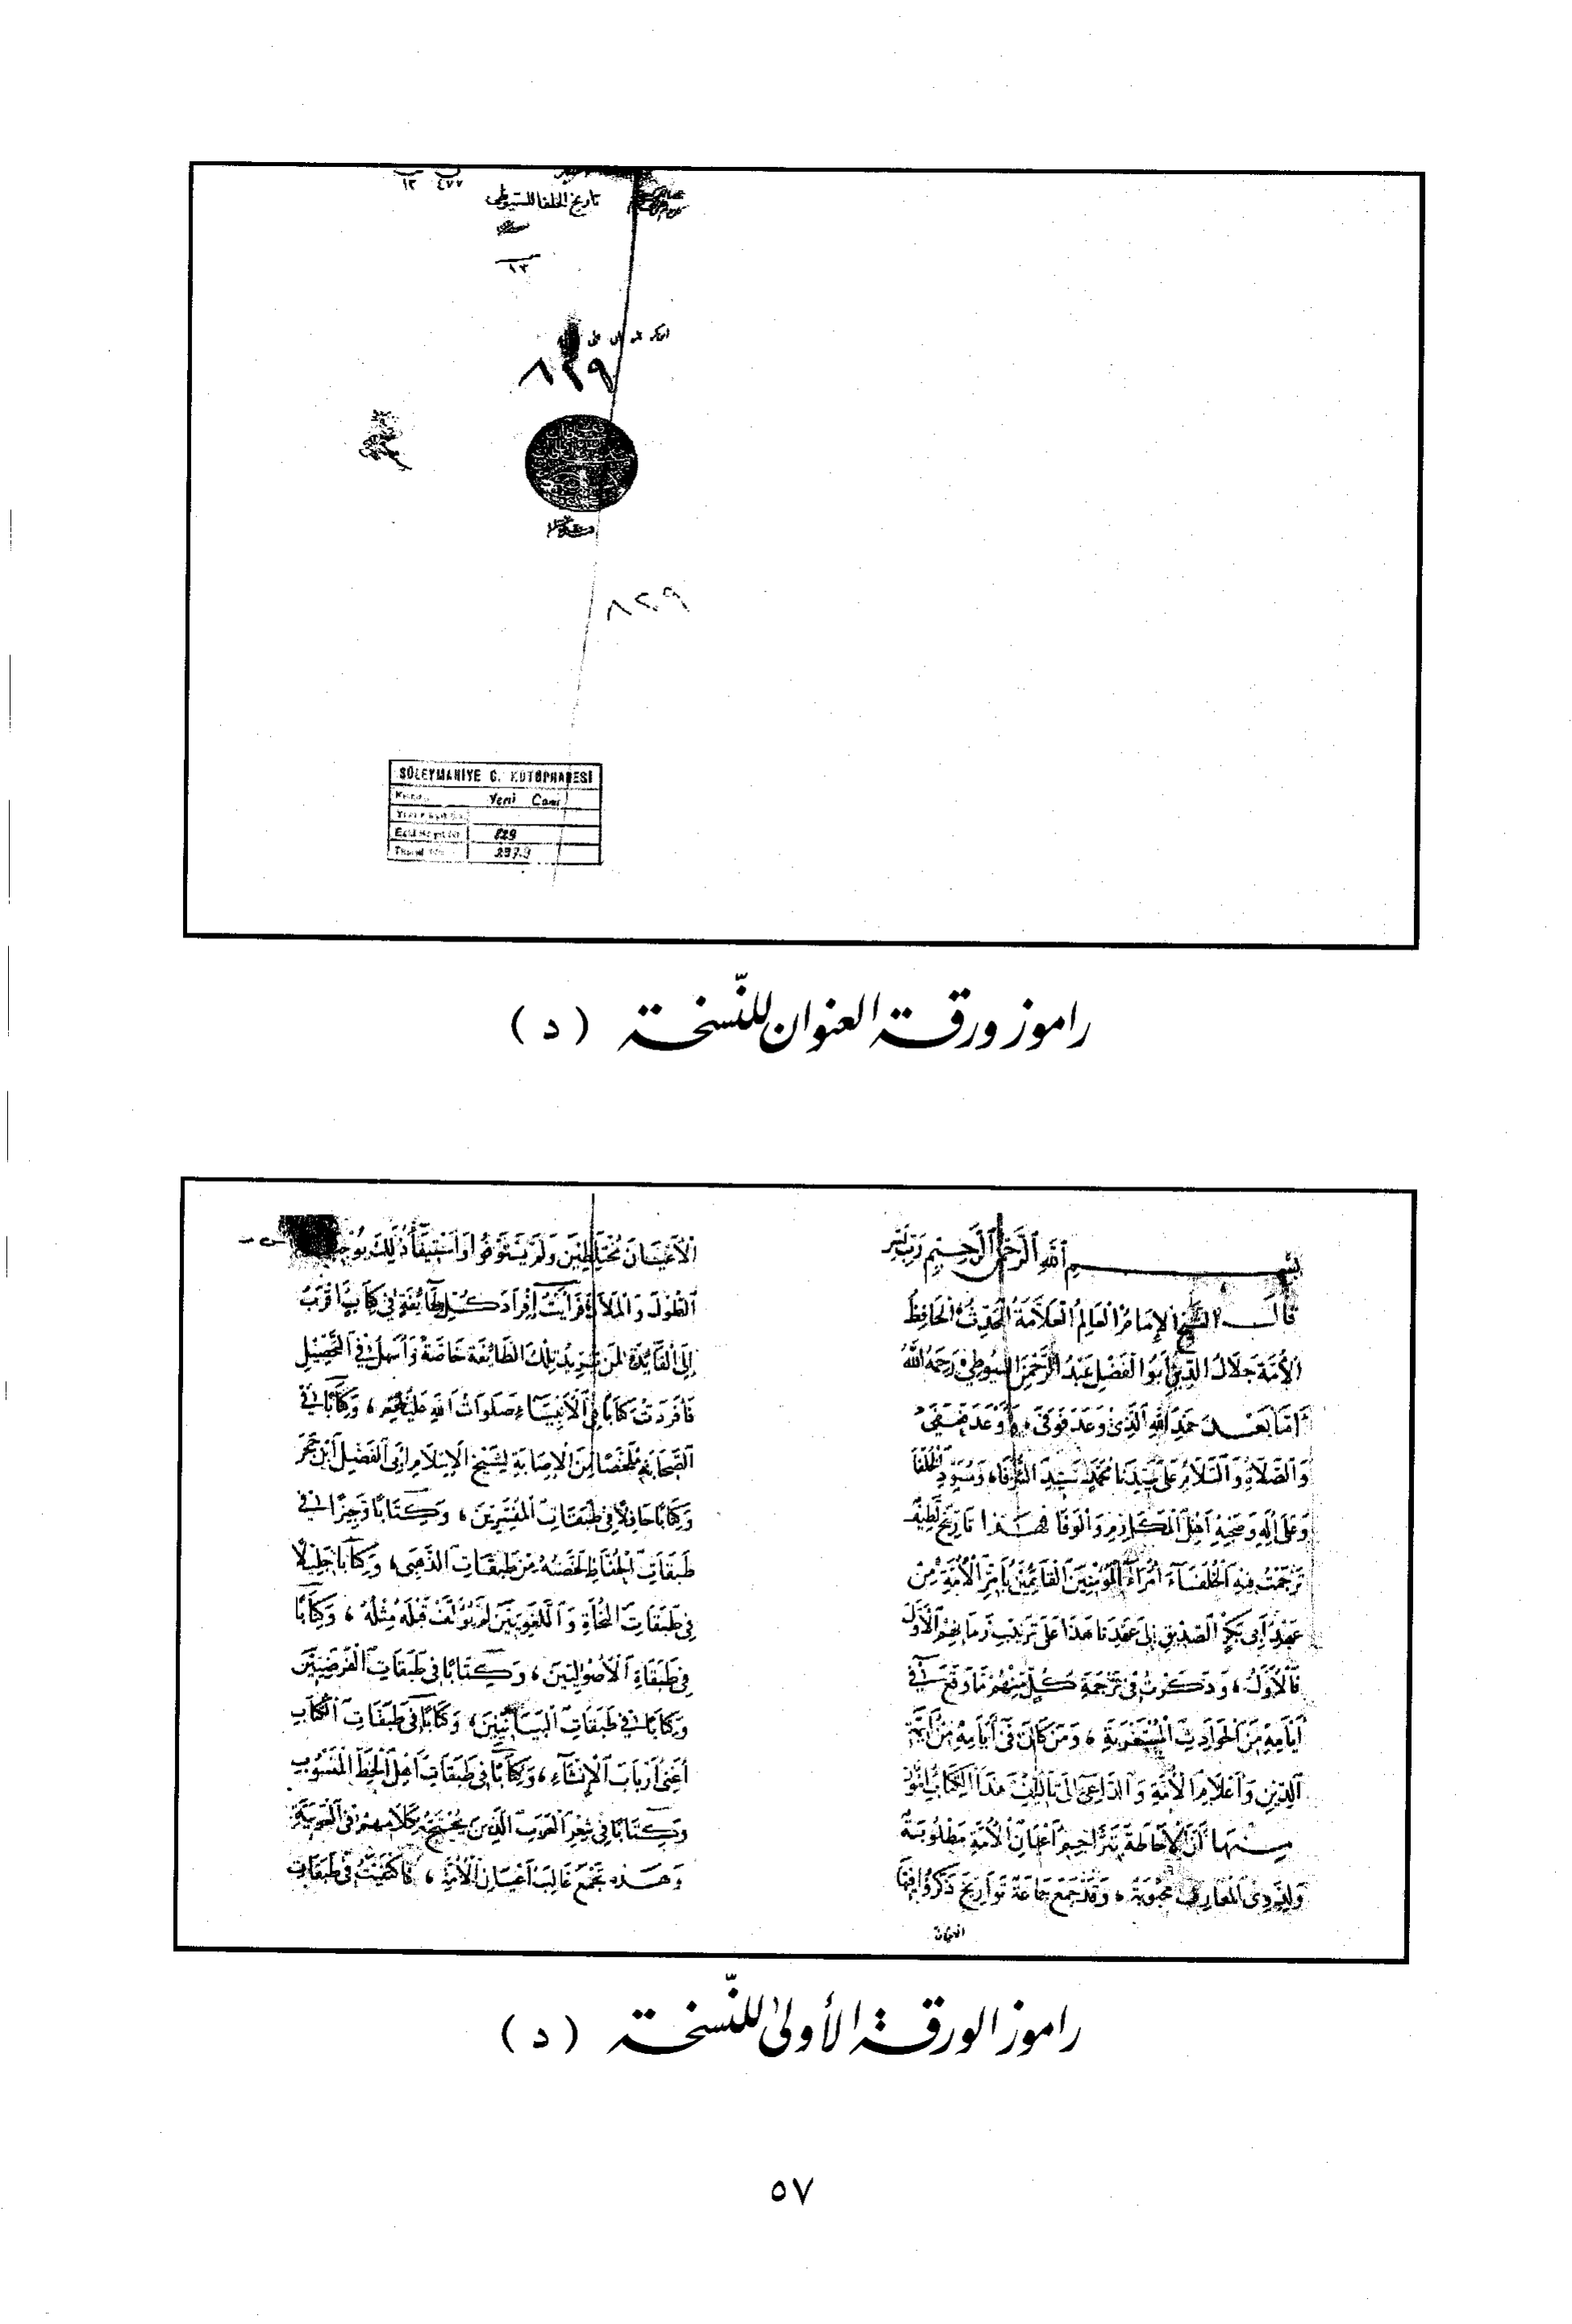 ٤٧٧ ١٣
تاريخ الخلفا للسيوطي
١٣
٨٢٩
٨٢٩
SÜLEYMANİYE G. KÜTÜPHANESİ
Yeni Cami
829
297.9
راموز ورقة العنوان للنّسخة (د)
بسم الله الرحمن الرحيم رب يسر
قال الشيخ الإمام العالم العلامة المحدث الحافظ
الأمة جلال الدين أبو الفضل عبد الرحمن السيوطي رحمه الله
أما بعد حمد الله الذي وعد فوفى، وأوعد فعفى
والصلاة والسلام على سيدنا محمد سيد الشرفاء ومسود الخلفا
وعلى اله وصحبه أهل المكارم والوفا فهذا تاريخ لطيف
ترجمت فيه الخلفاء أمراء المؤمنين القائمين بأمر الأمة من
عهد أبي بكر الصديق إلى عهدنا هذا على ترتيب زمانهم الأول
فالأول، وذكرت في ترجمة كل منهم ما وقع في
أيامه من الحوادث المستغربة، ومن كان في أيامه من أئمة
الدين وأعلام الأمة والداعي إلى تأليف هذا الكتاب أمور
منها أن الإحاطة بتراجم أعيان الأمة مطلوبة
ولذوي المعارف محبوبة، وقد جمع جماعة تواريخ ذكروا فيها
الأعيان
الأعيان مختلطين ولم يستوفوا واستيفاء ذلك يوجب
الطول والملال فرأيت إفراد كل طائفة في كتاب أقرب
إلى الفائدة لمن يريد تلك الطائفة خاصة وأسهل في التحصيل
فأفردت كتابا في الأنبياء صلوات الله عليهم، وكتابا في
الصحابة ملخصا من الإصابة لشيخ الإسلام أبي الفضل ابن حجر
وكتابا حافلا في طبقات المفسرين، وكتابا وجيزا في
طبقات الحفاظ لخصته من طبقات الذهبي، وكتابا جليلا
في طبقات النحاة واللغويين لم يؤلف قبله مثله، وكتابا
في طبقاة الأصوليين، وكتابا في طبقات الفرضيين
وكتابا في طبقات البيانيين، وكتابا في طبقات الكتاب
أعني أرباب الإنشاء، وكتابا في طبقات أهل الخط المنسوب
وكتابا في شعر العرب الذين يحتج بكلامهم في العربية
وهذه تجمع غالب أعيان الأمة، فاكتفيت في طبقات
راموز الورقة الأولى للنّسخة (د)
٥٧